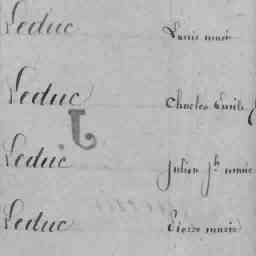 Leduc Louis marie
Leduc Charles Emile
Leduc Julien Jh marie
Leduc Pierre marie